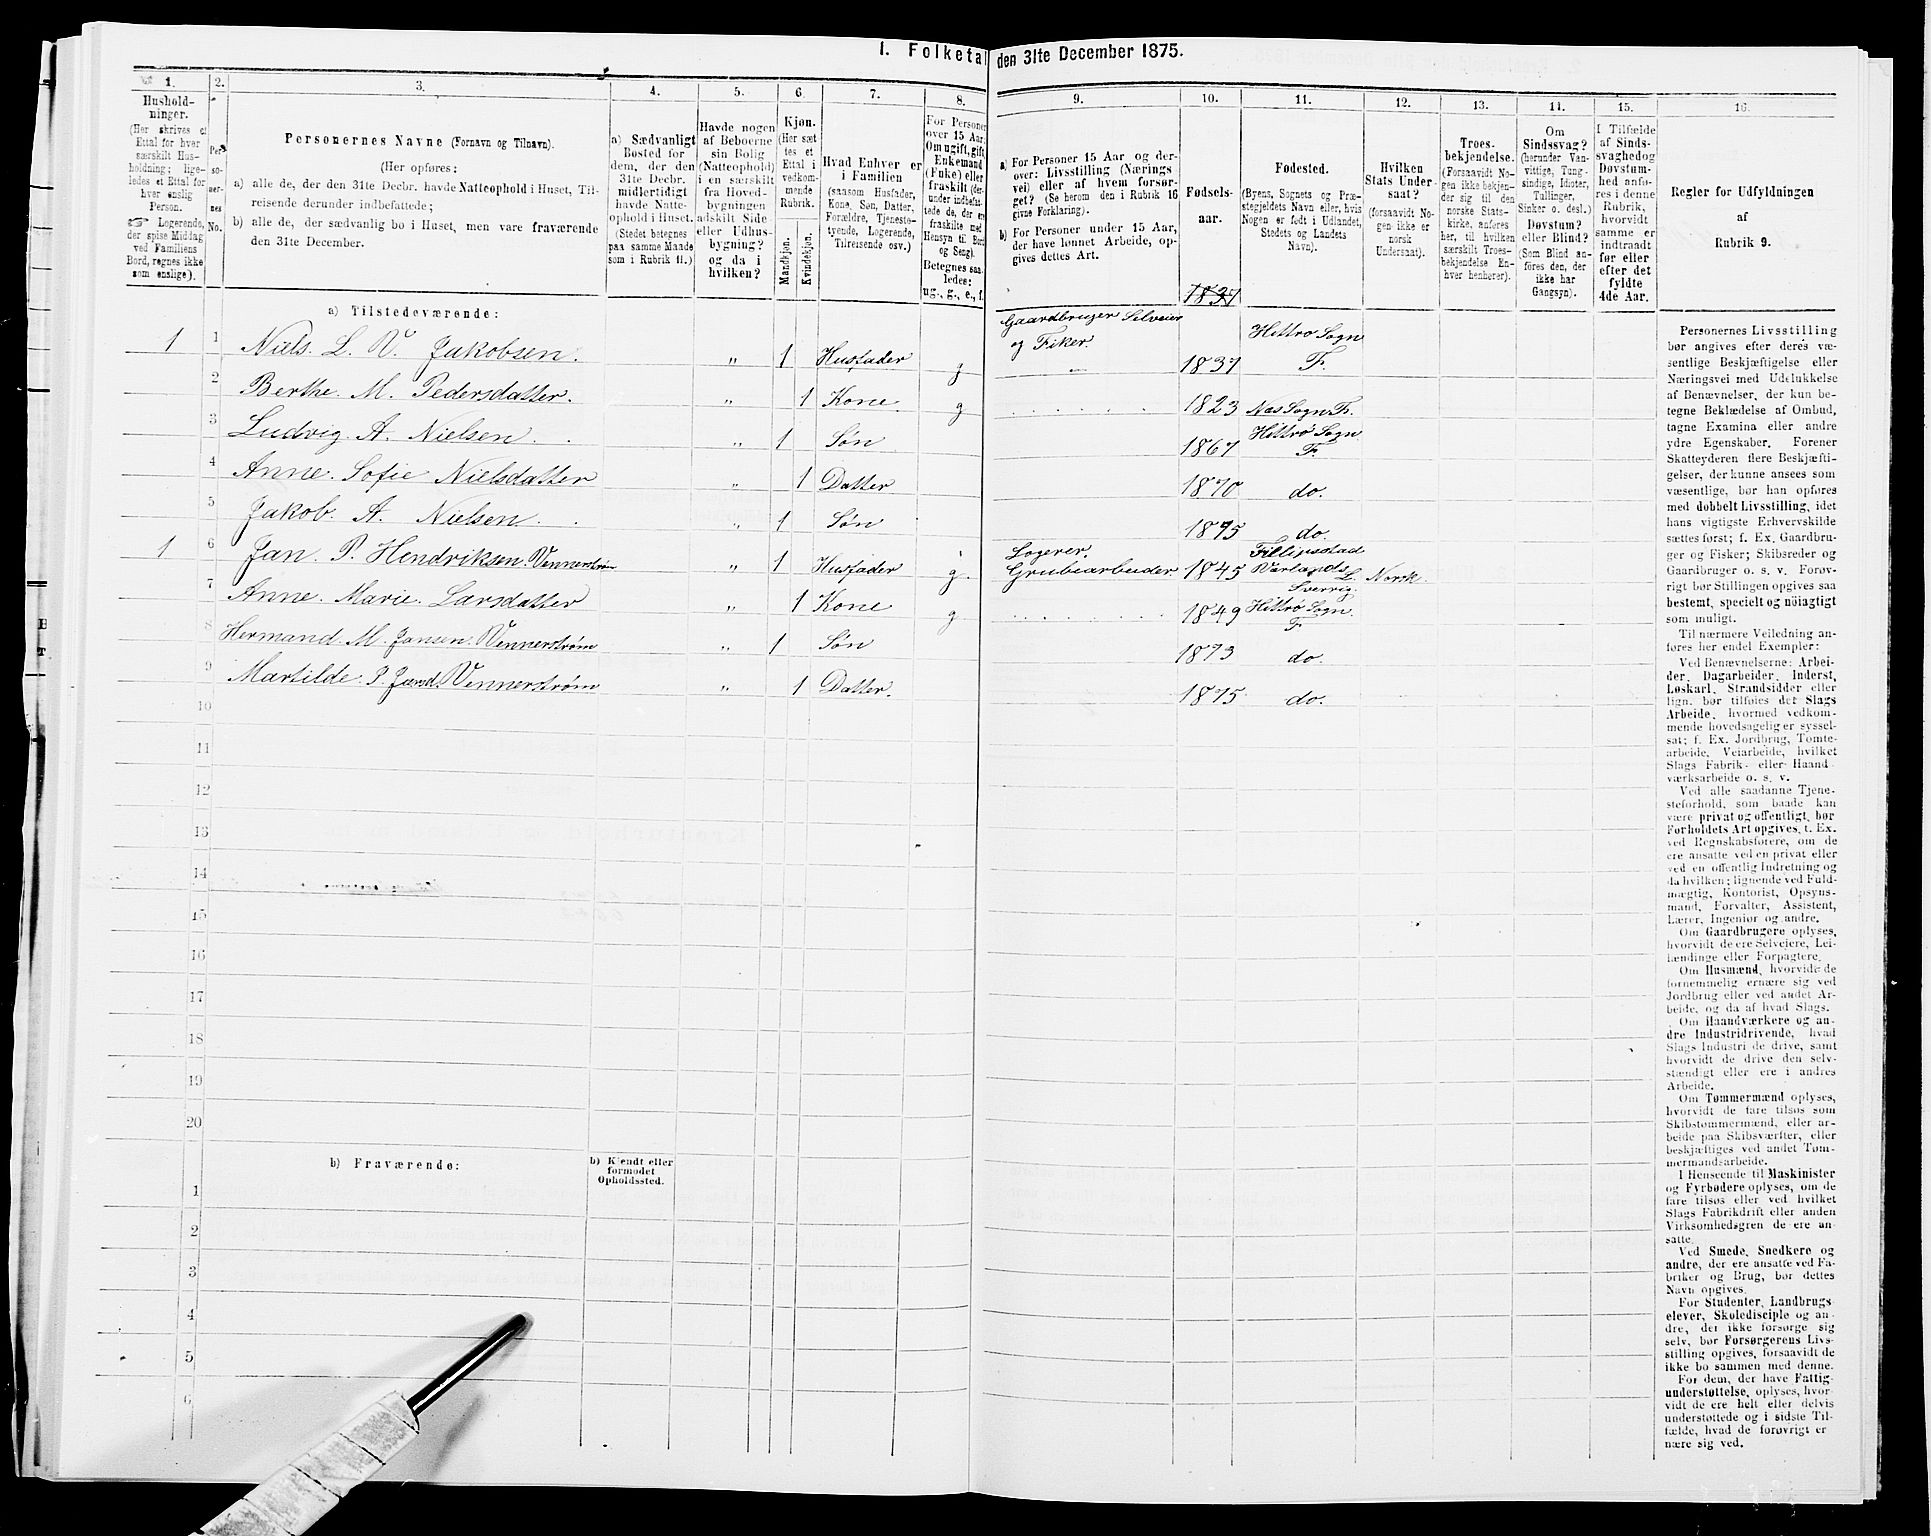 1. Folketal den 31te December 1875.
1. 2. 3. 4. 5. 6. 7. 8. 9. 10. 11. 12. 13. 14. 15. 16.
Hushold-
ninger.
(Her skrives et
Ettal for hver
særskilt Hus-
holdning; lige-
ledes et Ettal for
hver enslig
Person.
☞ Logerende,
der spise Middag
ved Familiens
Bord, regnes ikke
som enslige).
Per-
so-
ner-
nes
No.
Personernes Navne (Fornavn og Tilnavn).
(Her opføres:
a) alle de, der den 31te Decbr. havde Natteophold i Huset, Til-
reisende derunder indbefattede;
b) alle de, der sædvanlig bo i Huset, men vare fraværende
den 31te December.
a) Sædvanligt
Bosted for
dem, der den
31te Decbr.
midlertidigt
havde Natte-
ophold i Huset.
(Stedet betegnes
paa samme Maade
som i Rubrik 11.)
Havde nogen
af Beboerne
sin Bolig
(Natteophold)
i en særskilt
fra Hoved-
bygningen
adskilt Side-
eller Udhus-
bygning?
og da i
hvilken?
Kjøn.
(Her sæt-
tes et
Ettal i
vedkom-
mende
Rubrik.
Mandkjøn.
Kvindekjøn.
Hvad Enhver er
i Familien
(saasom Husfader,
Kone, Søn, Datter,
Forældre, Tjeneste-
tyende, Logerende,
Tilreisende osv.)
For Personer
over 15 Aar:
Om ugift, gift,
Enkemand
(Enke) eller
fraskilt (der-
under indbefat-
tede de, der er
fraskilte med
Hensyn til Bord
og Seng).
Betegnes saa-
ledes:
ug., g., e., f.
a) For Personer 15 Aar og der-
over: Livsstilling (Nærings
vei) eller af hvem forsør-
get? (Se herom den i Rubrik 16
givne Forklaring).
b) For Personer under 15 Aar,
der have lønnet Arbeide, op-
gives dettes Art.
Fødsels-
aar.
1837
Fødested.
(Byens, Sognets og Præ-
stegjeldets Navn eller, hvis
Nogen er født i Udlandet,
Stedets og Landets
Navn).
Hvilken
Stats Under-
saat?
(forsaavidt No-
gen ikke er
norsk
Undersaat).
Troes-
bekjendelse.
(Forsaavidt No-
gen ikke bekjen-
der sig til den
norske Stats-
kirke, anføres
her, til hvilken
særskilt Troes-
bekjendelse En-
hver henhører).
Om
Sindssvag?
(herunder Van-
vittige, Tung-
sindige, Idioter,
Tullinger,
Sinker o. desl.)
Døvstum?
eller Blind?
(Som Blind an-
føres den, der
ikke har
Gangsyn).
I Tilfælde
af Sinds-
svaghed og
Døvstum-
hed anfø-
res i denne
Rubrik,
hvorvidt
samme er
indtraadt
før eller
efter det
fyldte
4de Aar.
Regler for Udfyldningen
af
Rubrik 9.
a) Tilstedeværende:
1 1 Niels. L. V. Jakobsen. „ 1 Husfader g Gaardbruger Selveier og Fisker. 1837 Hittrø Sogn F.
2 Berthe. M. Pedersdatter. „ 1 Kone. g 1823 Næs Sogn F.
3 Ludvig. A. Nielsen. „ 1 Søn 1867 Hittrø Sogn F.
4 Anne. Sofie Nielsdatter „ 1 Datter 1870 do.
5 Jakob. A. Nielsen. „ 1 Søn 1875 do.
1 6 Jan. P. Hendriksen. Vennerstrøm „ 1 Husfader g. Logerer. Grubearbeider. 1845 Fillipsstad Værlands L. Sverrig. Norsk.
7 Anne. Marie. Larsdatter „ 1 Kone g 1849 Hittrø Sogn. F.
8 Hermand. M. Jansen. Vennerstrøm „ 1 Søn 1873 do.
9 Martilde. P. Jansd. Vennerstrøm „ 1 Datter. 1875 do.
10
11
12
13
14
15
16
17
18
19
20
b) Fraværende:
b) Kjendt eller
formodet
Opholdssted.
1
2
3
4
5
6
Personernes Livsstilling
bør angives efter deres væ-
sentlige Beskjæftigelse eller
Næringsvei med Udelukkelse
af Benævnelser, der kun be-
tegne Beklædelse af Ombud,
tagne Examina eller andre
ydre Egenskaber. Forener
Skatteyderen flere Beskjæfti-
gelser, der kunne ansees som
væsentlige, bør han opføres
med dobbelt Livsstilling, idet
hans vigtigste Erhvervskilde
sættes først; f. Ex. Gaardbru-
ger og Fisker; Skibsreder og
Gaardbruger o. s. v. Forøv-
rigt bør Stillingen opgives saa
bestemt, specielt og nöiagtigt
som muligt.
Til nærmere Veiledning an-
føres her endel Exempler:
Ved Benævnelserne: Arbei-
der, Dagarbeider, Inderst,
Løskarl, Strandsidder eller
lign. bør tilføies det Slags
Arbeide, hvormed vedkom-
mende hovedsagelig er syssel-
sat; f. Ex. Jordbrug, Tomte-
arbeide, Veiarbeide, hvilket
Slags Fabrik- eller Haand-
værksarbeide o. s. v.
Ved alle saadanne Tjene-
steforhold, som baade kan
være privat og offentligt, bør
Forholdets Art opgives, t. Ex.
ved Regnskabsførere, om de
ere ansatte ved en privat eller
ved en offentlig Indretning og
da hvilken; lignende ved Fuld-
mægtig, Kontorist, Opsyns-
mand, Forvalter, Assistent,
Lærer, Ingeniør og andre.
Om Gaardbrugere oplyses,
hvorvidt de ere Selveiere, Lei-
lændinge eller Forpagtere.
Om Husmænd, hvorvidt de
fornemmelig ernære sig ved
Jordbrug eller ved andet Ar-
beide, og da af hvad Slags.
Om Haandværkere og an-
dre Industridrivende, hvad
Slags Industri de drive, samt
hvorvidt de drive den selv-
stændigt eller ere i andres
Arbeide.
Om Tømmermænd oplyses,
hvorvidt de fare tilsøs som
Skibstømmermænd, eller ar-
beide paa Skibsværfter, eller
beskjæftiges ved andet Tøm-
mermandsarbeide.
I Henseende til Maskinister
og Fyrbødere oplyses, om de
fare tilsøs eller ved hvilket
Slags Fabrikdrift eller anden
Virksomhedsgren de ere an-
satte.
Ved Smede, Snedkere og
andre, der ere ansatte ved Fa-
briker og Brug, bør dettes
Navn opgives.
For Studenter, Landbrugs-
elever, Skoledisciple og an-
dre, der ikke forsørge sig
selv, bør Forsørgerens Livs-
stilling opgives, forsaavidt de
ikke bo sammen med denne.
For dem, der have Fattig-
understøttelse, oplyses, hvor-
vidt de ere helt eller delvis
understøttede og i sidste Til-
fælde, hvad de forøvrigt er-
nære sig ved.